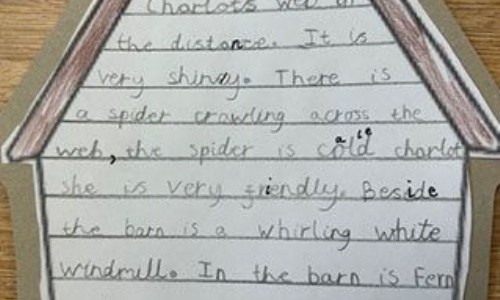 Charlots web in
the distance. It is
very shinny. There is
a spider crawling across the
web, the spider is cald charlot
she is very friendly. Beside
the barn is a whirling white
windmill. In the barn is Fern